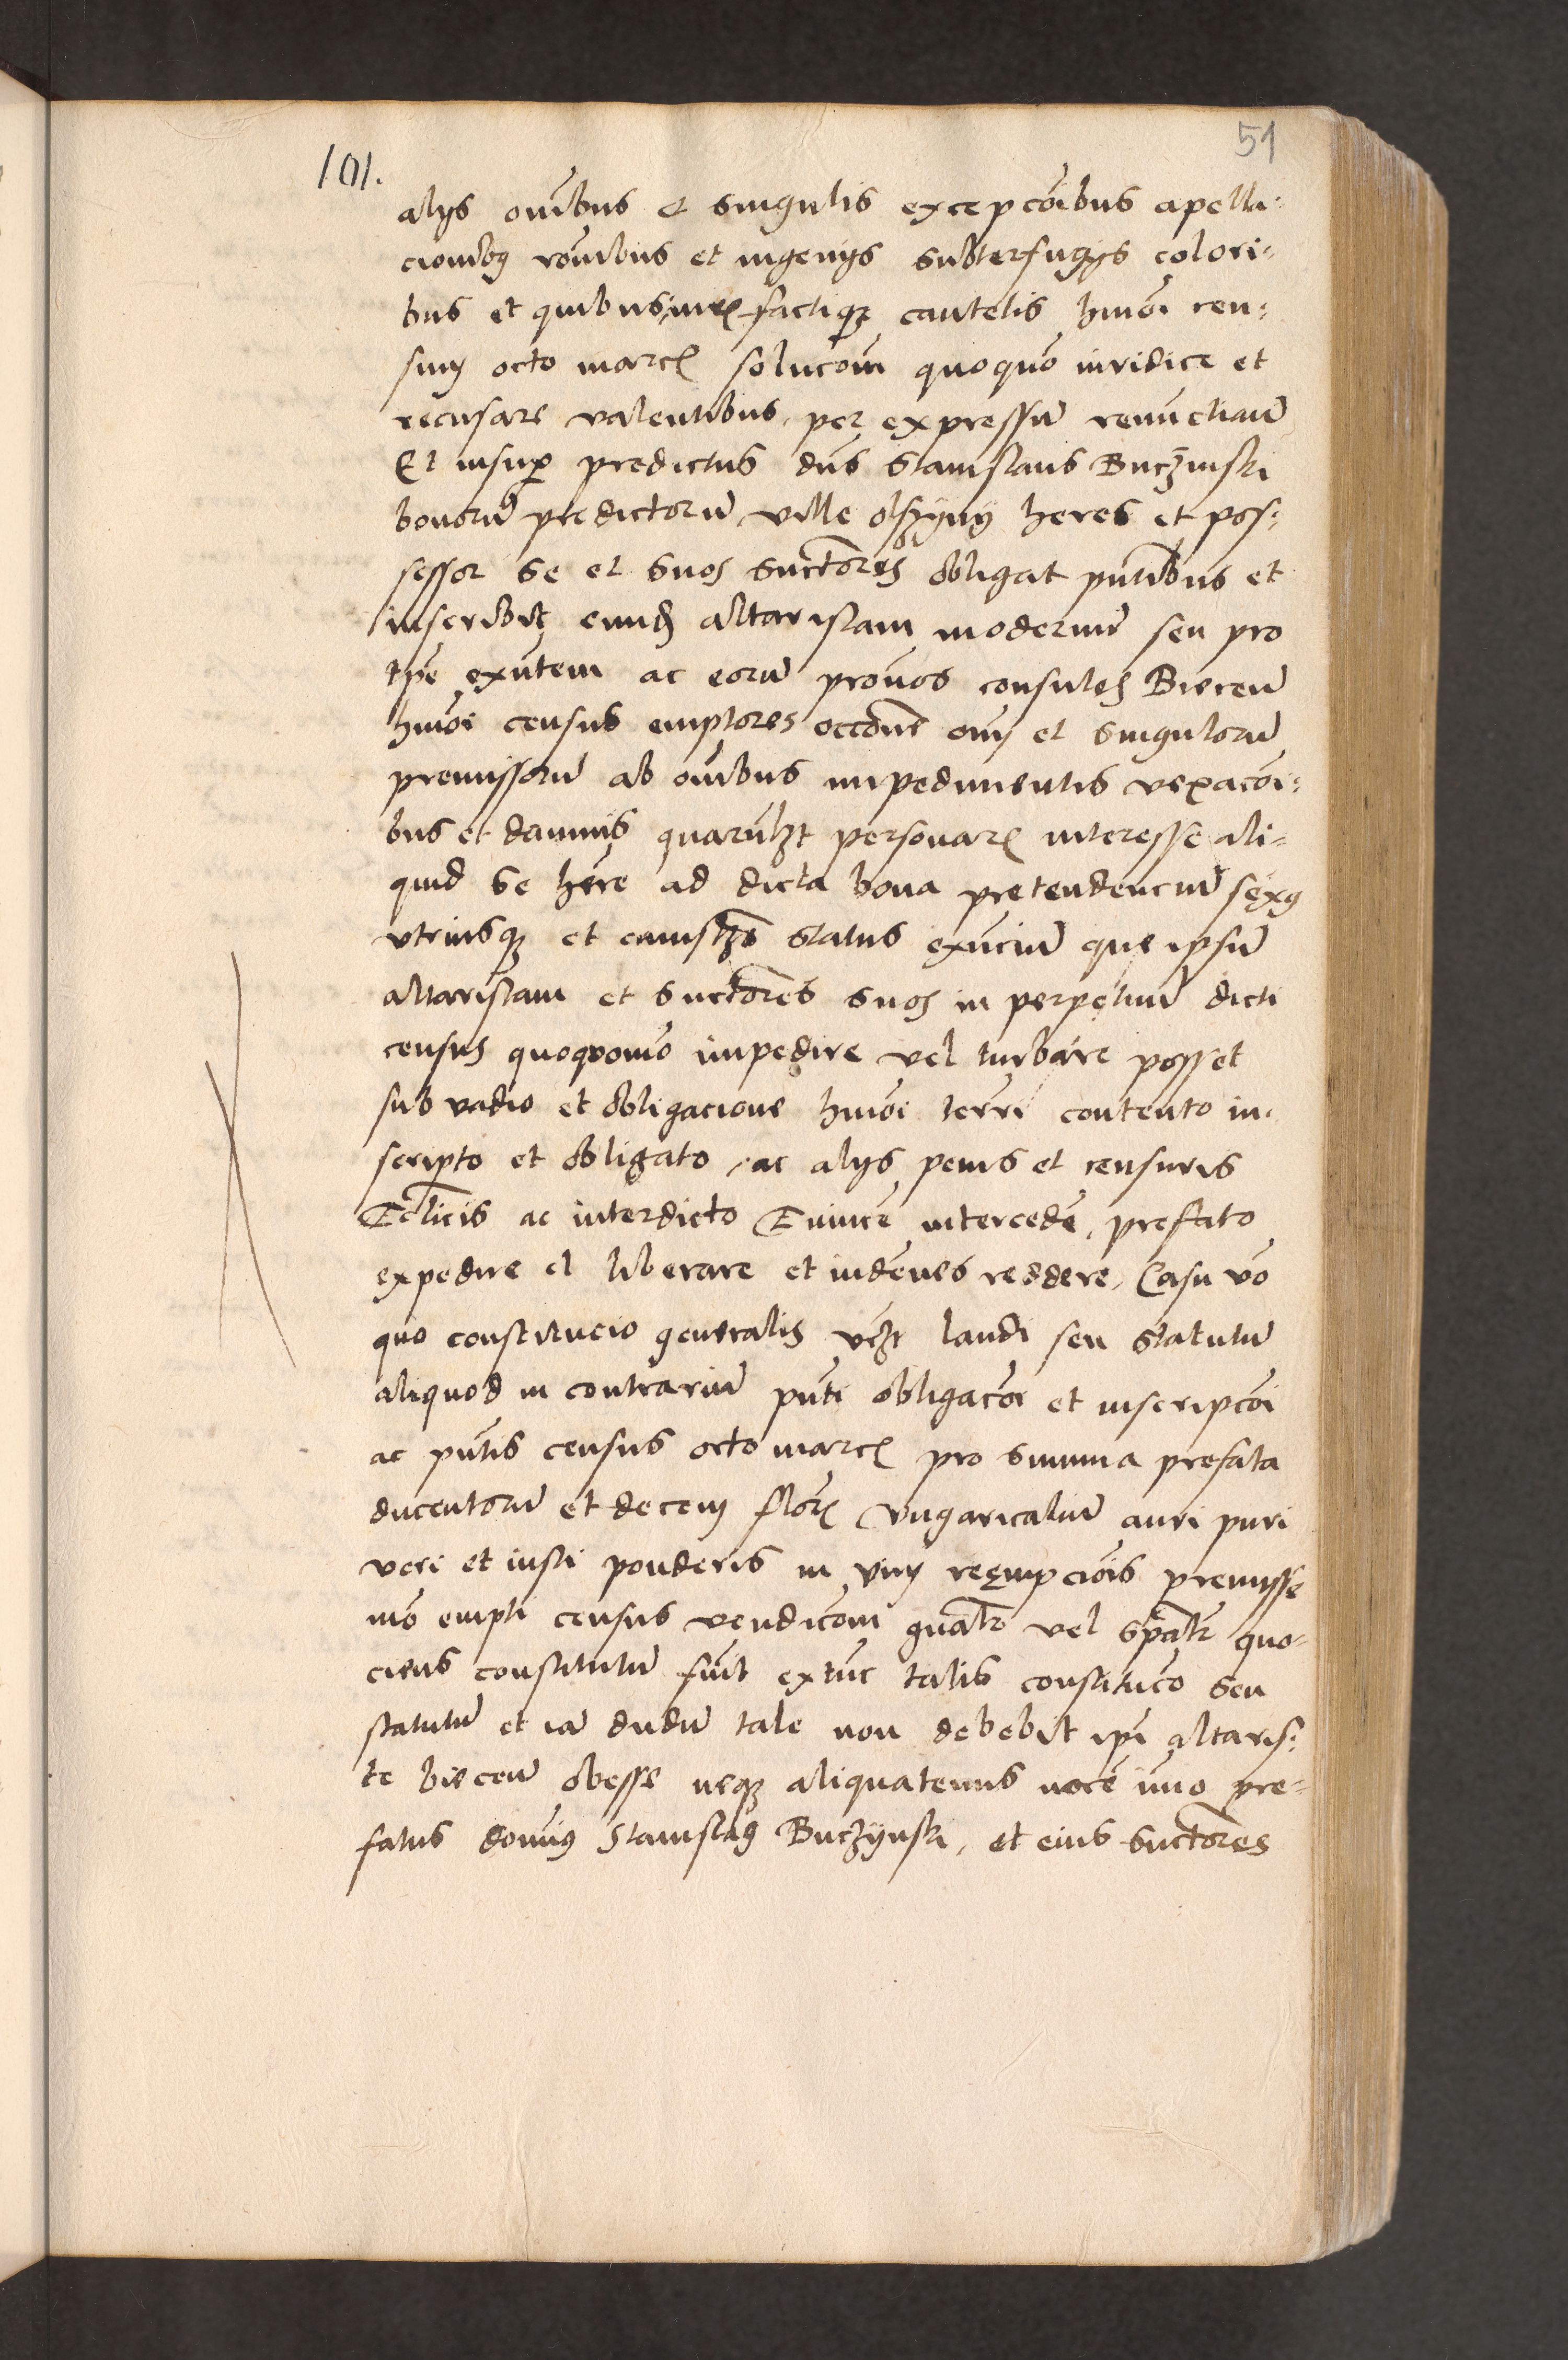 101.
51
alys omībus et singulis excepcōibus apella:
cionibꝰ rōnibus et ingenys subterfugys colori:
bus et quibusuis factiqꝫ cautelis hmōi cen:
sum octo marcꝭ solucōm quoquō iuridice et
recusare valentibus per expressum renūctiaūt
Et insuꝑ predictus dn̄s Stanislaus Buczinski
bonorū predictorū ville olszyny heres et pos:
sessor se et suos suctōres obligat pn̄tibus et
inscribit eundē altaristam modernū seu pro
tp̄e exn̄tem ac eorū prouos consules Biecen̄
hmōi census emptores occōne om̄ et singulorū
premissorū ab om̄ibus impedimentis vexacōi:
bus et damnis quarūlꝫt personarꝭ interesse ali=
quid se hēre ad dicta bona pretendenciū sexꝰ
vtriusqꝫ et cuiuslꝫt status exn̄ciū que ipsū
altaristam et suctōres suos in perpetuū dicti
census quoquomō impedire vel turbare posset
sub vadio et obligacione hmōi terri contento in:
scripto et obligato, ac alys penis et censuris
Ecl̄icis ac interdicto Euincē intercedē, prefato
expedire et liberare et indēnes reddere, Casu vō
quo constitucio generalis vcꝫt laudi seu statutū
aliquod in contrariū pn̄ti obligacōi et inscripcōi
ac pn̄tis census octo marcꝭ pro summa prefata
ducentorū et decem florꝭ Vngaricaliū auri puri
veri et iusti ponderis in vim reempciōis premisse
mō empti census vendicōm gn̄alr̄ vel sp̄alr̄ quo=
ciens constitutū fuit extūc talis constitucō seu
statutū et iā dudū tale non debebit ip̄i altaris:
te biecen̄ obesse neqꝫ aliquatenus nocē imo pre=
fatus domiꝰ Stanislaꝰ Buczynski, et eius suctōres